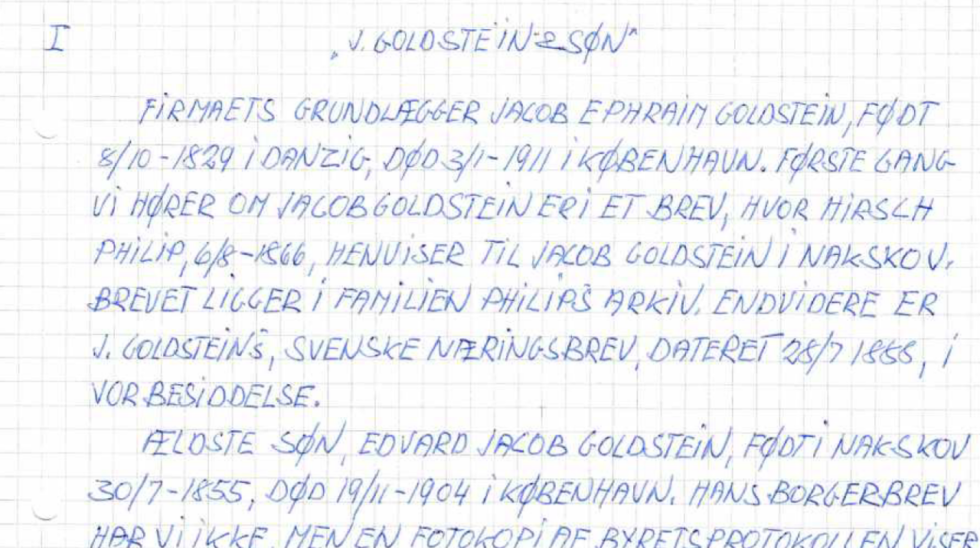 I „J. GOLDSTEIN & SØN"
FIRMAETS GRUNDLÆGGER JACOB EPHRAIM GOLDSTEIN, FØDT
8/10-1829 I DANZIG, DØD 3/1-1911 I KØBENHAVN. FØRSTE GANG
VI HØRER OM JACOB GOLDSTEIN ER I ET BREV, HVOR HIRSCH
PHILIP, 6/8-1866, HENVISER TIL JACOB GOLDSTEIN I NAKSKOV.
BREVET LIGGER I FAMILIEN PHILIPS ARKIV. ENDVIDERE ER
J. GOLDSTEINS, SVENSKE NÆRINGSBREV, DATERET 28/7 1868, I
VOR BESIDDELSE.
ÆLDSTE SØN, EDVARD JACOB GOLDSTEIN, FØDT I NAKSKOV
30/7-1855, DØD 19/11-1904 I KØBENHAVN. HANS BORGERBREV
HAR VI IKKE, MEN EN FOTOKOPI AF BYRETSPROTOKOLLEN VISER